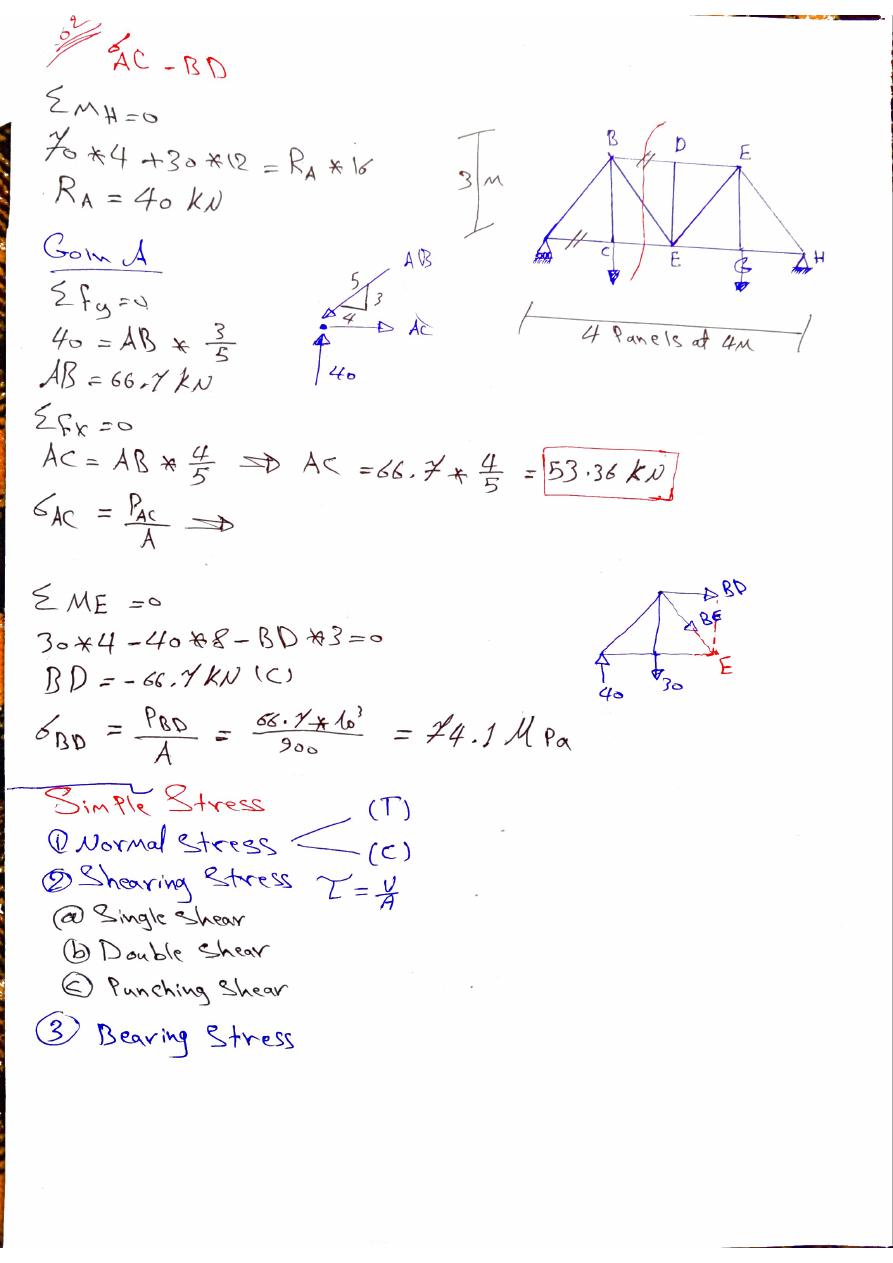 02
σAC - BD
ΣMH=0
70*4+30*12=RA*16
RA=40 kN
3 M
B D E
C E G H
4 Panels at 4M
Goin A
Σfy=0
40=AB*3/5
AB=66.7 kN
AB
5
3
4
AC
40
Σfx=0
AC=AB*4/5 ⇒ AC=66.7*4/5=53.36 kN
σAC=PAC/A ⇒
ΣME=0
30*4-40*8-BD*3=0
BD=-66.7 kN (C)
σBD=PBD/A=66.7*10³/900=74.1 MPa
BD
BE
E
40
30
Simple Stress
① Normal stress (T)
(C)
② Shearing Stress τ=V/A
ⓐ Single shear
ⓑ Double shear
ⓒ Punching shear
③ Bearing Stress